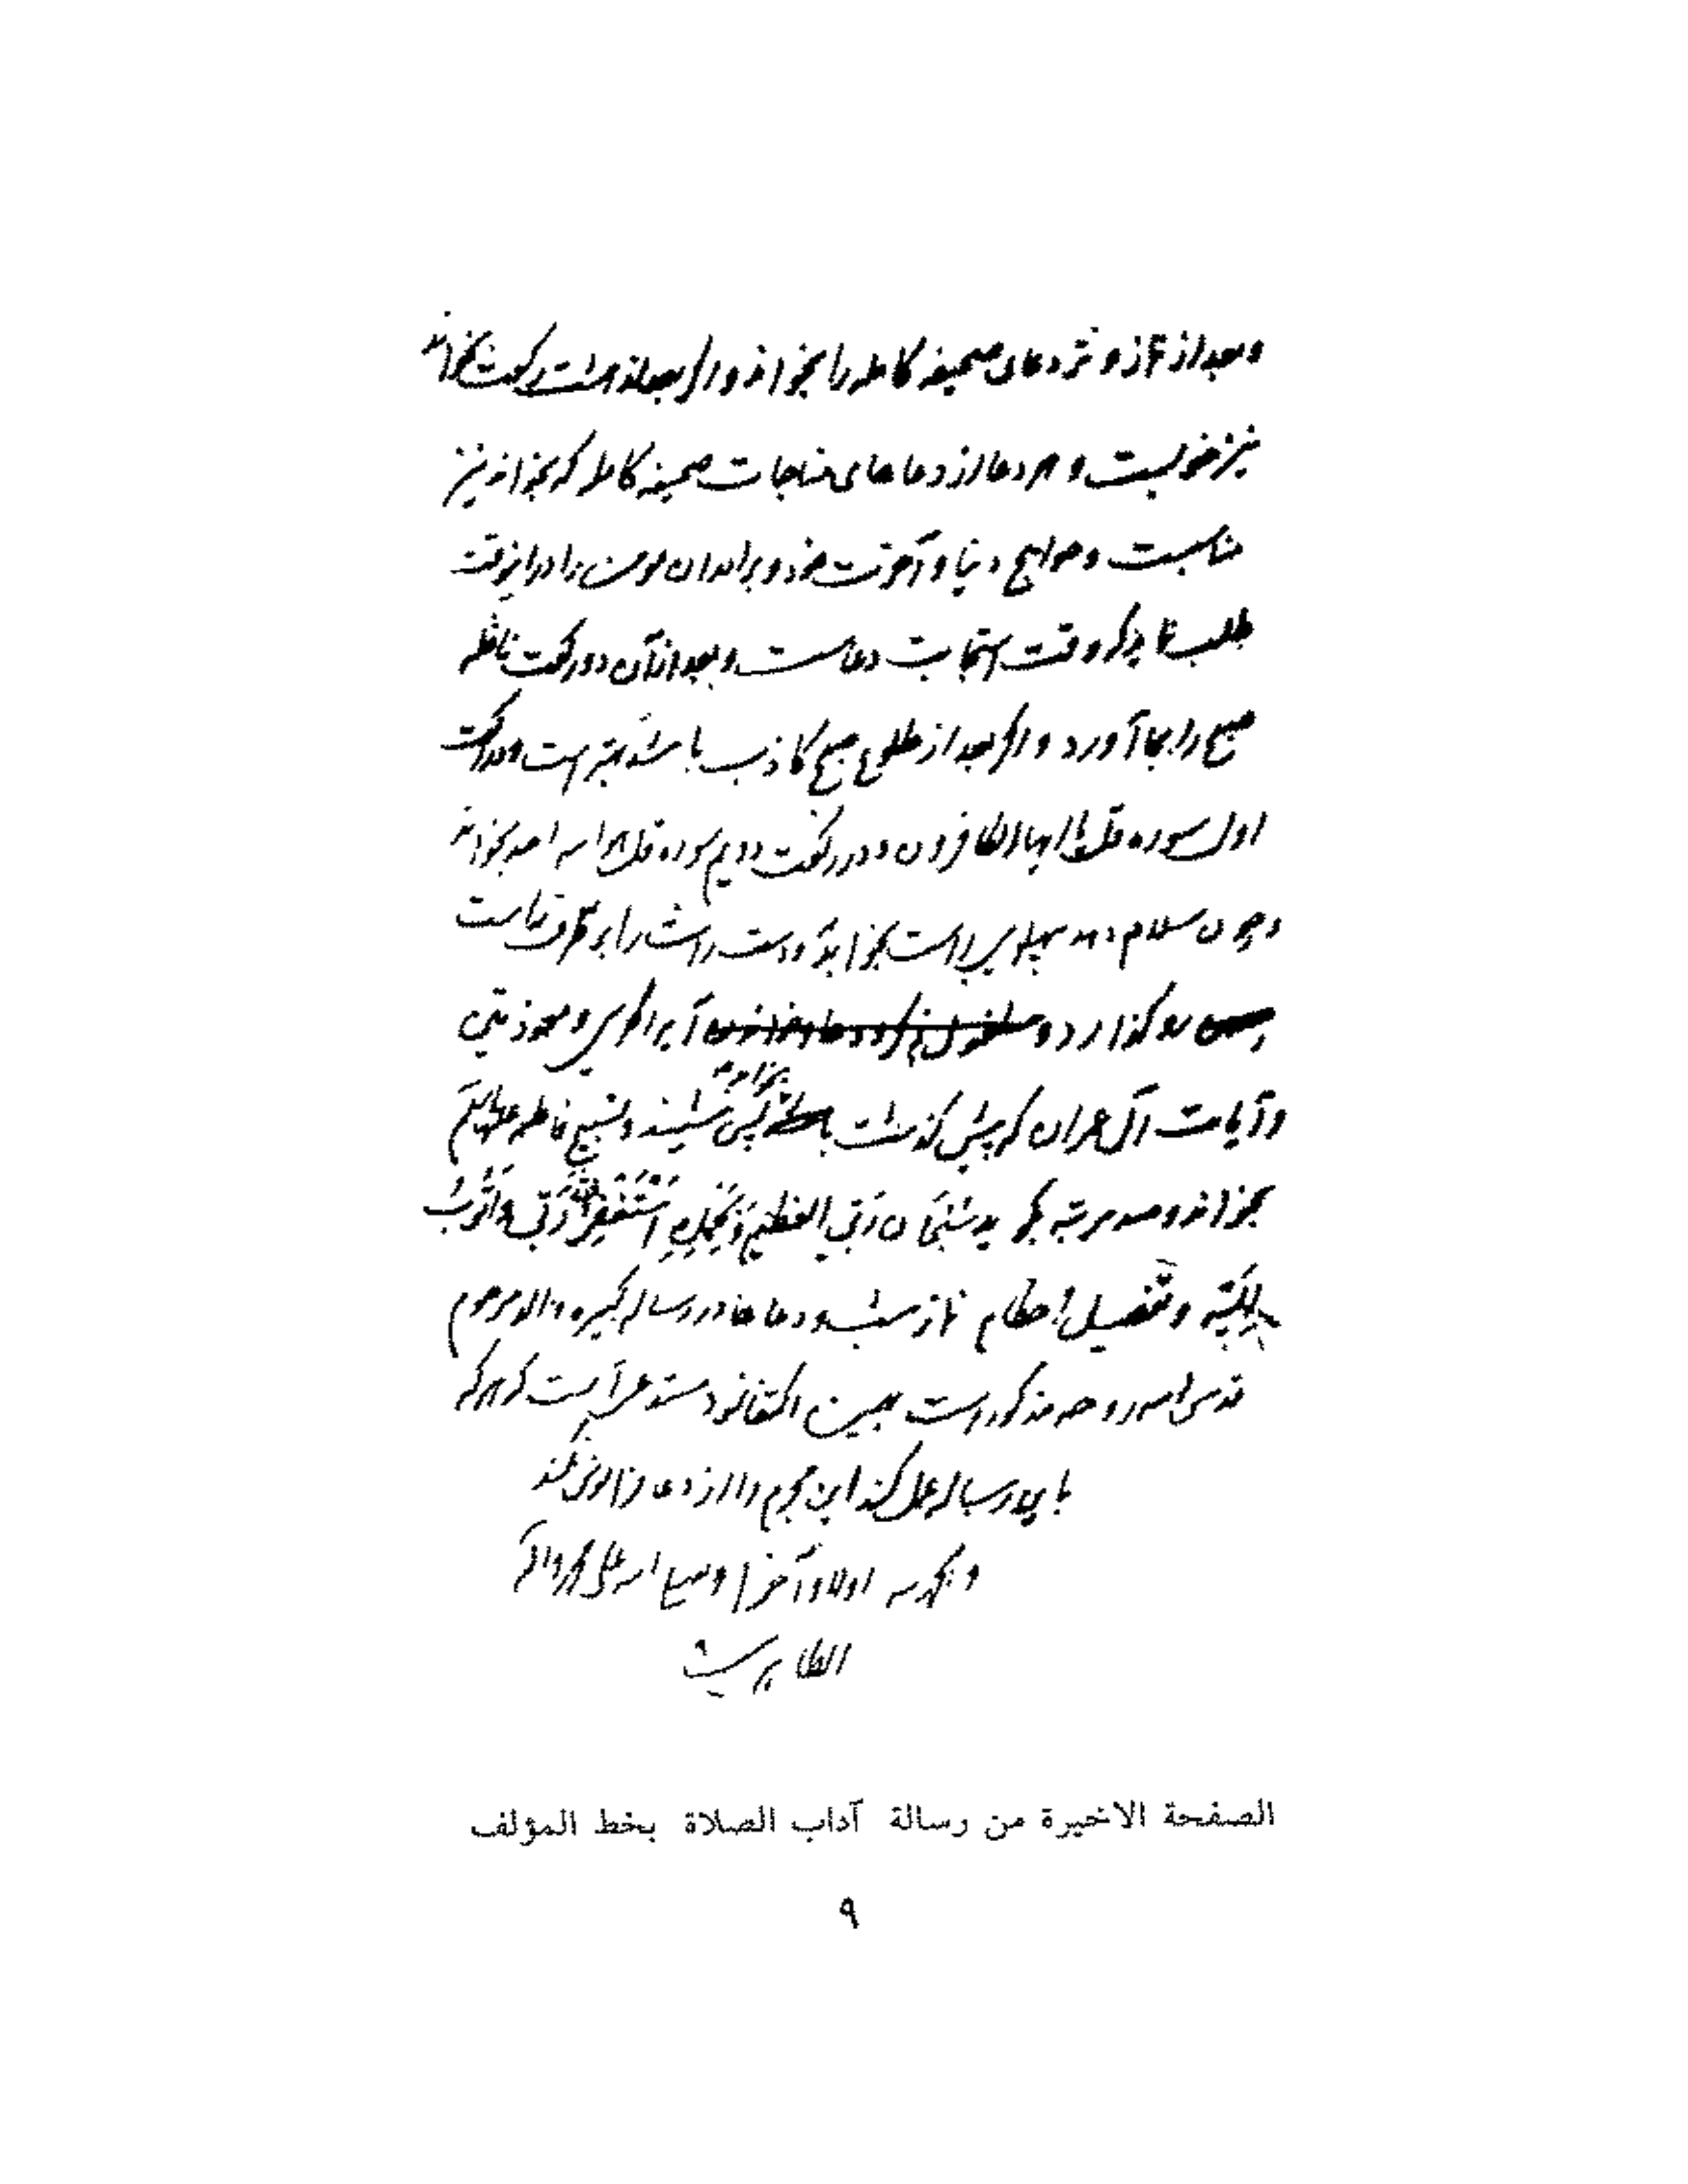 و بعد از نماز وتر دعای صحیفه کامله را بخواند و اگر بعد از هشت رکعت بخواند
نیز خوبست و هر دعا از دعاهای مناجات صحیفه کامله که بخواند نیز
مناسبست و حوایج دنیا و آخرت خود و برادران مومن را در اینوقت
طلب نماید که وقت استجابت دعاست و بعد از آن دو رکعت نافله
صبح را بجا آورد و اگر بعد از طلوع صبح کاذب باشد بهتر است و در رکعت
اول سوره قل یا ایها الکافرون و در رکعت دویم سوره قل هو الله احد بخواند
و چون سلام دهد بپهلوی راست بخوابد و دست راست را بر طرف راست
رو گذارد و آیه الکرسی و معوذتین
و آیات آل عمران که پیش گذشت بخواند پس بنشیند و تسبیح فاطمه علیها السلام
بخواند و صد مرتبه بگوید سُبْحَانَ رَبِّيَ العَظِيمِ وَبِحَمْدِهِ اَسْتَغْفِرُ اللهَ رَبِّي وَاَتُوبُ
اِلَيْهِ و تفصیل احکام نماز شب و دعاها در رساله کبیره والد مرحوم
قدس الله روحه مذکور است بهمین اکتفا نمود مستدعی آنست که هر که
باین رساله عمل کند این مجرم را از دعا فراموش نکند
و الحمد لله اولا و آخرا و صلی الله علی محمد و آله
الطاهرین
الصفحة الاخيرة من رسالة آداب الصلاة بخط المؤلف
٩